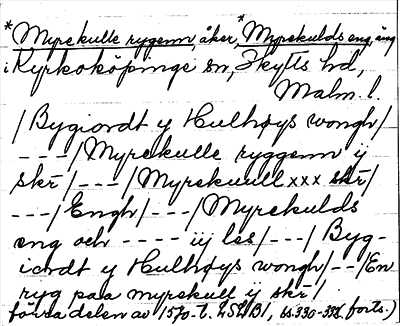 *Myrekulle ryggenn, åker, *Myrekulds eng, äng
i Kyrkoköpinge sn, Skytts hd,
Malm. l.
/Bygiordt y Hulhøys wongh/
---/Myrekulle ryggenn ij
skr/---/Myrekuull xxx skr/
---/Engh/---/Myrekulds
eng och ---- iij les/---/Byg-
iordt y Hulhøys wongh/--/En
ryg paa myrekull ij skr/
förra delen av 1570-t. LSLB1, ss.330-332 forts.)